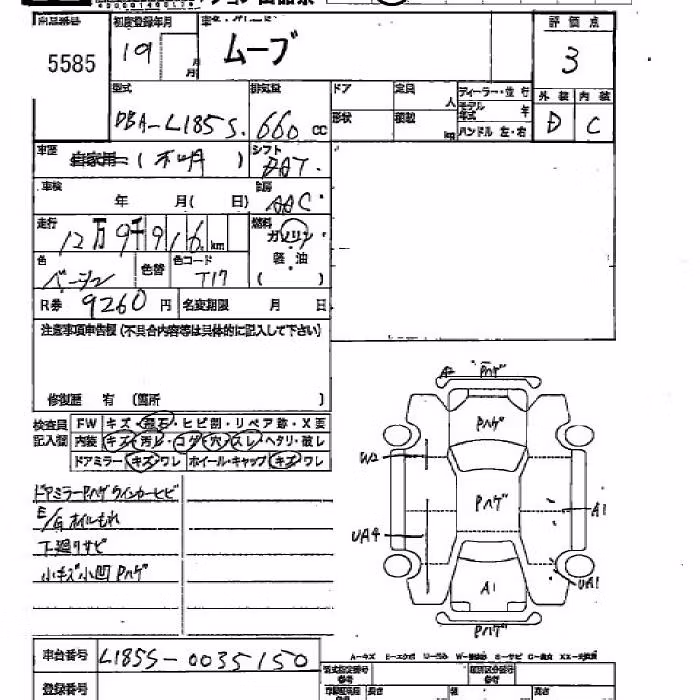 出品番号 初度登録年月 車名・グレード 評価点
5585 19 年 月 ムーブ 3
型式 排気量 ドア 定員 人 ディーラー・並行 外装 内装
DBA-L185S. 660 cc 形状 積載 kg モデル年式 年 ハンドル 左・右 D C
車歴 自家用 (不明) シフト
車検 年 月( 日) 冷房 AAC
走行 12万9千916 km 燃料 ガソリン
色 ベージュ 色替 色コード T17 軽油 ( )
R券 9260円 名変期限 月 日
注意事項申告欄(不具合内容等は具体的に記入して下さい)
修復歴 有 (箇所 )
検査員記入欄 FW キズ・飛石・ヒビ割・リペア跡・X要
内装 キズ・汚レ・コゲ・穴・スレ・ヘタリ・破レ
ドアミラー キズ・ワレ ホイール・キャップ キズ・ワレ
ドアミラーPハゲウインカーヒビ
E/Gオイルもれ
下廻りサビ
小キズ小凹Pハゲ
A2 Pハゲ
Pハゲ
W2
Pハゲ
A1
UA4
UA1
A1
Pハゲ
車台番号 L185S-0035150
登録番号
型式指定番号 参考 類別区分番号 参考
長さ 幅 高さ